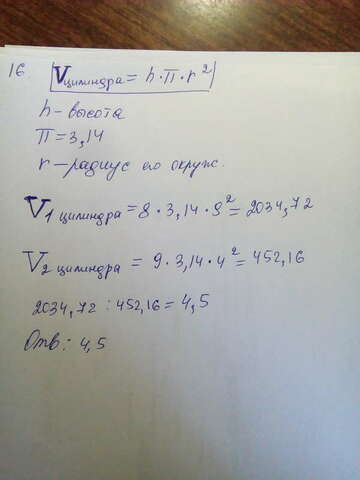 16. Vцилиндра = h · П · r²
h - высота
П = 3,14
r - радиус его окруж.
V1 цилиндра = 8 · 3,14 · 9² = 2034,72
V2 цилиндра = 9 · 3,14 · 4² = 452,16
2034,72 : 452,16 = 4,5
Отв: 4,5